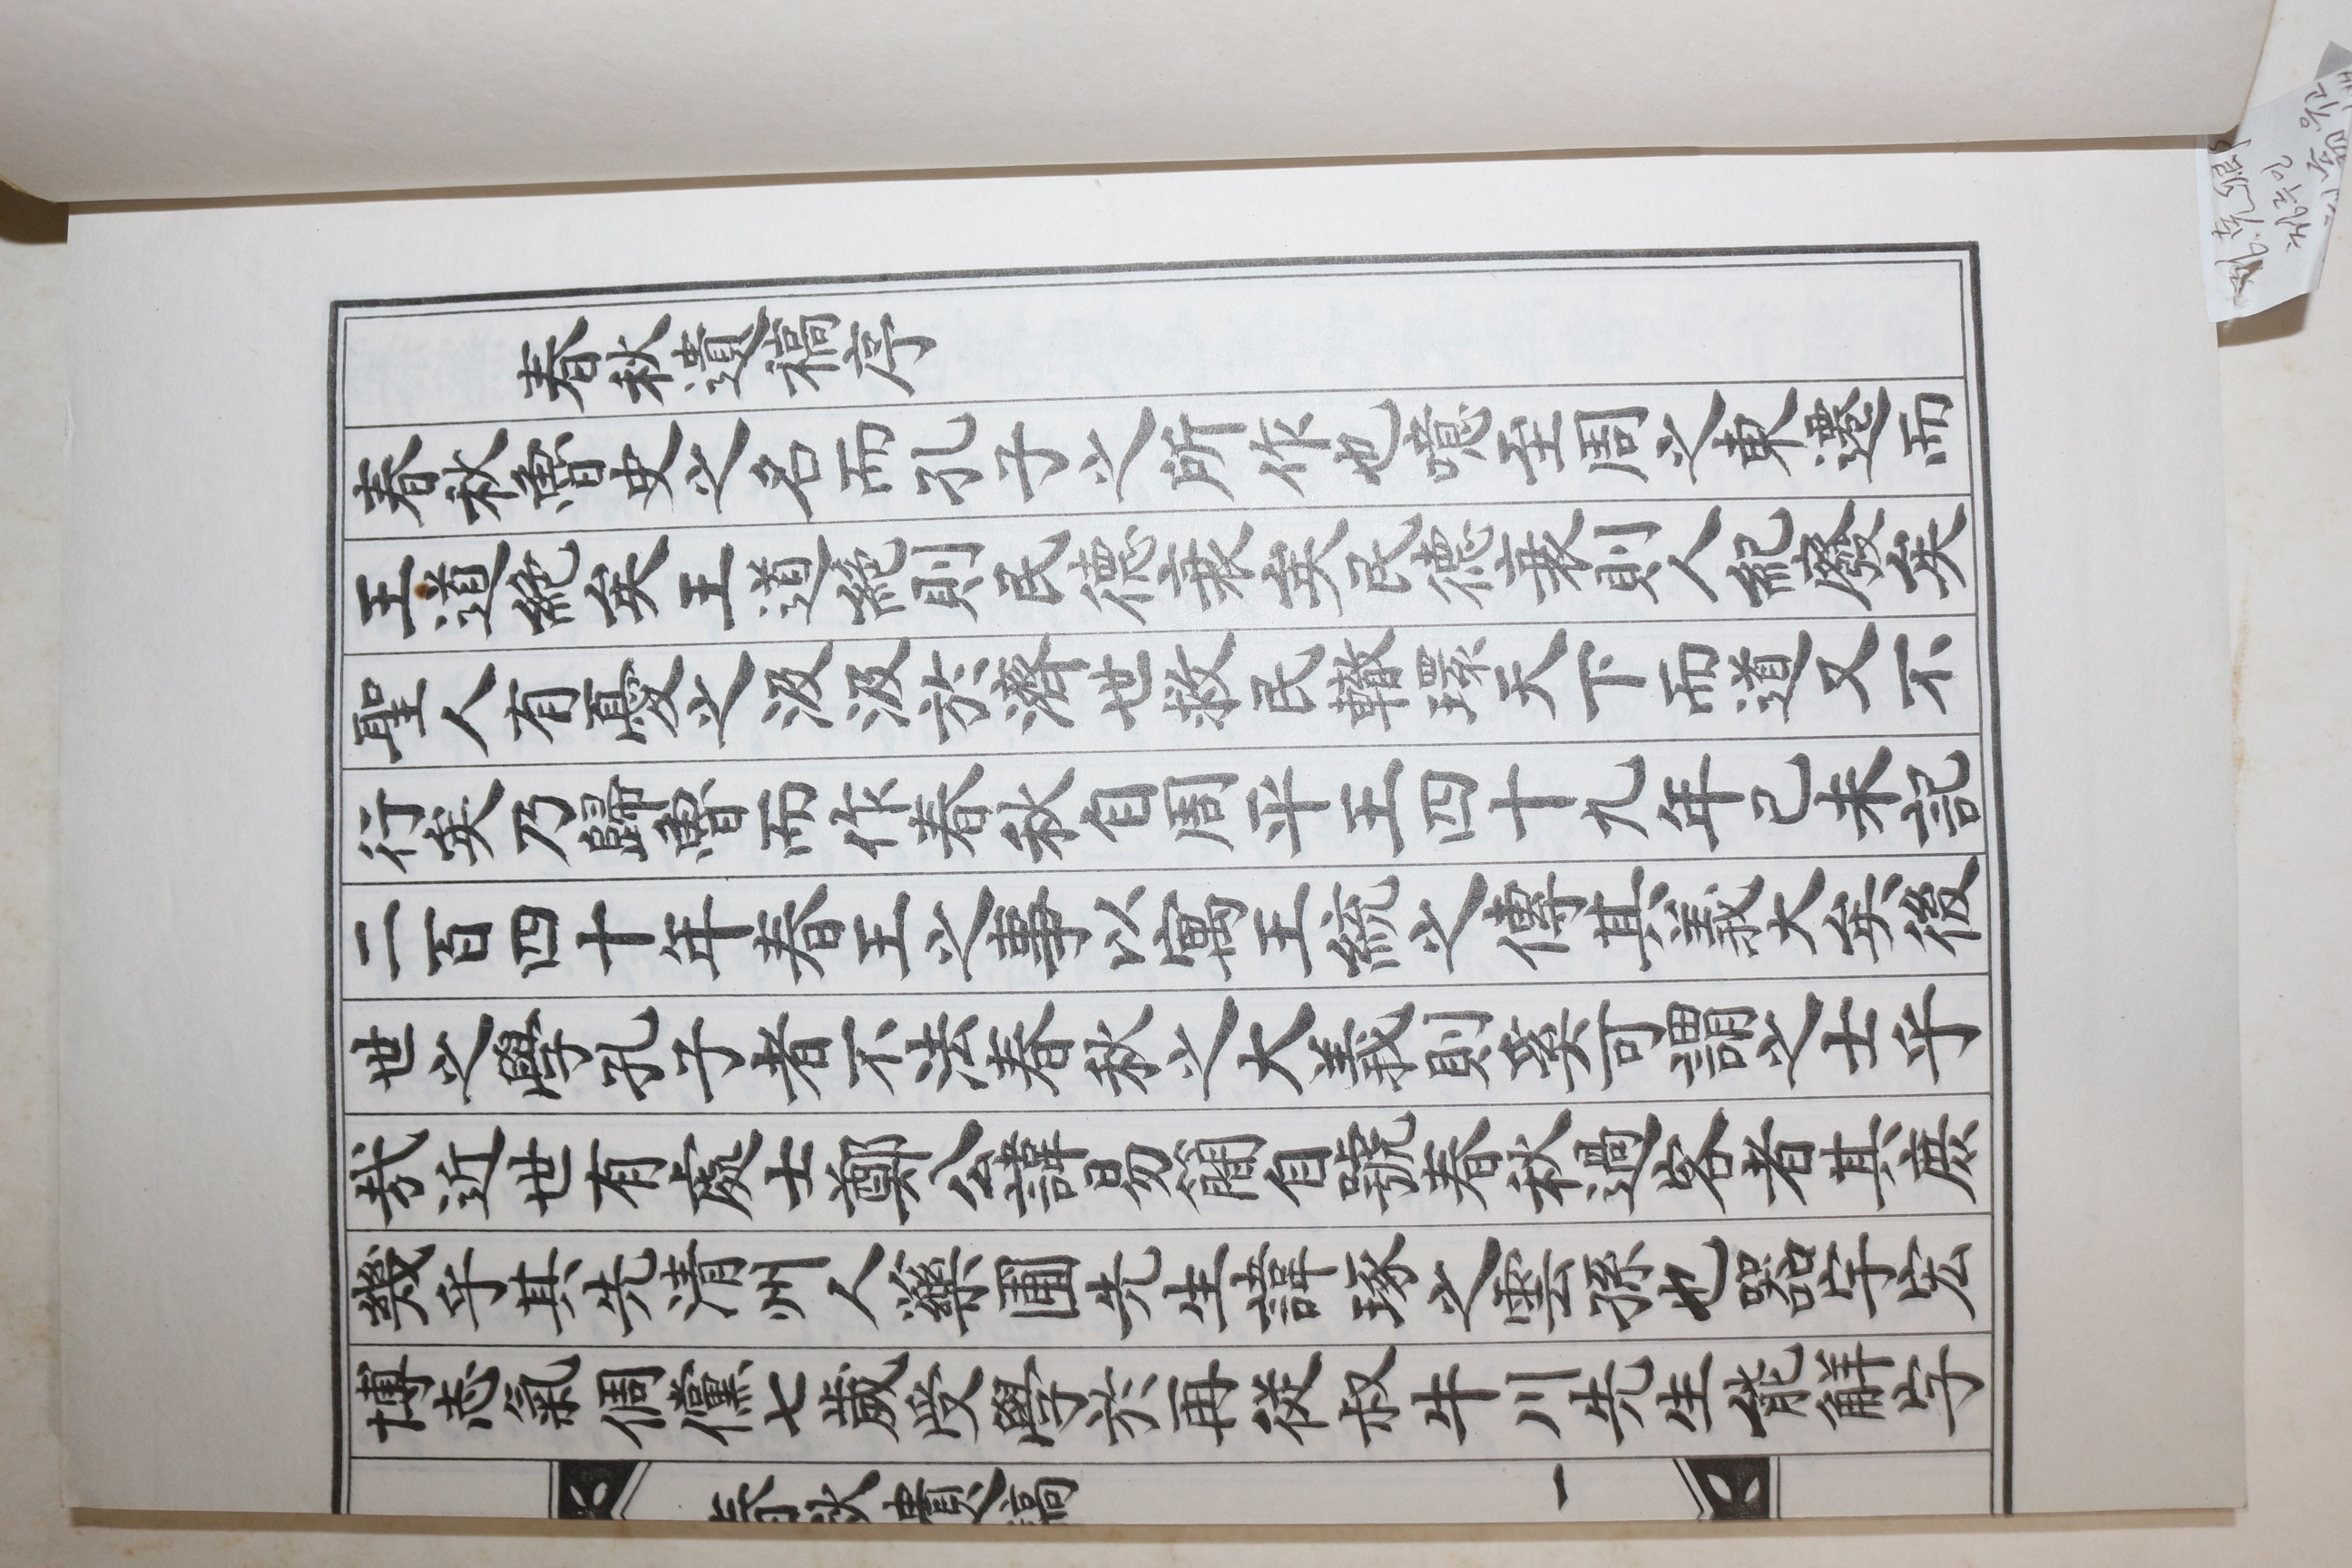 春秋遺稿序
春秋魯史之名而孔子之所作也噫至周之東遷而
王道絶矣王道絶則民德衰矣民德衰則人紀廢矣
聖人有憂之汲汲於濟世救民轍環天下而道又不
行矣乃歸魯而作春秋自周平王四十九年己未記
二百四十年春王之事以寓王統之傳其義大矣後
世之學孔子者不法春秋之大義則奚可謂之士乎
哉近世有處士鄭公諱易簡自號春秋過客者其庶
幾乎其先清州人藥圃先生諱琢之雲孫也器宇宏
博志氣倜儻七歲受學於再從叔牛川先生能解字
春秋遺稿 一